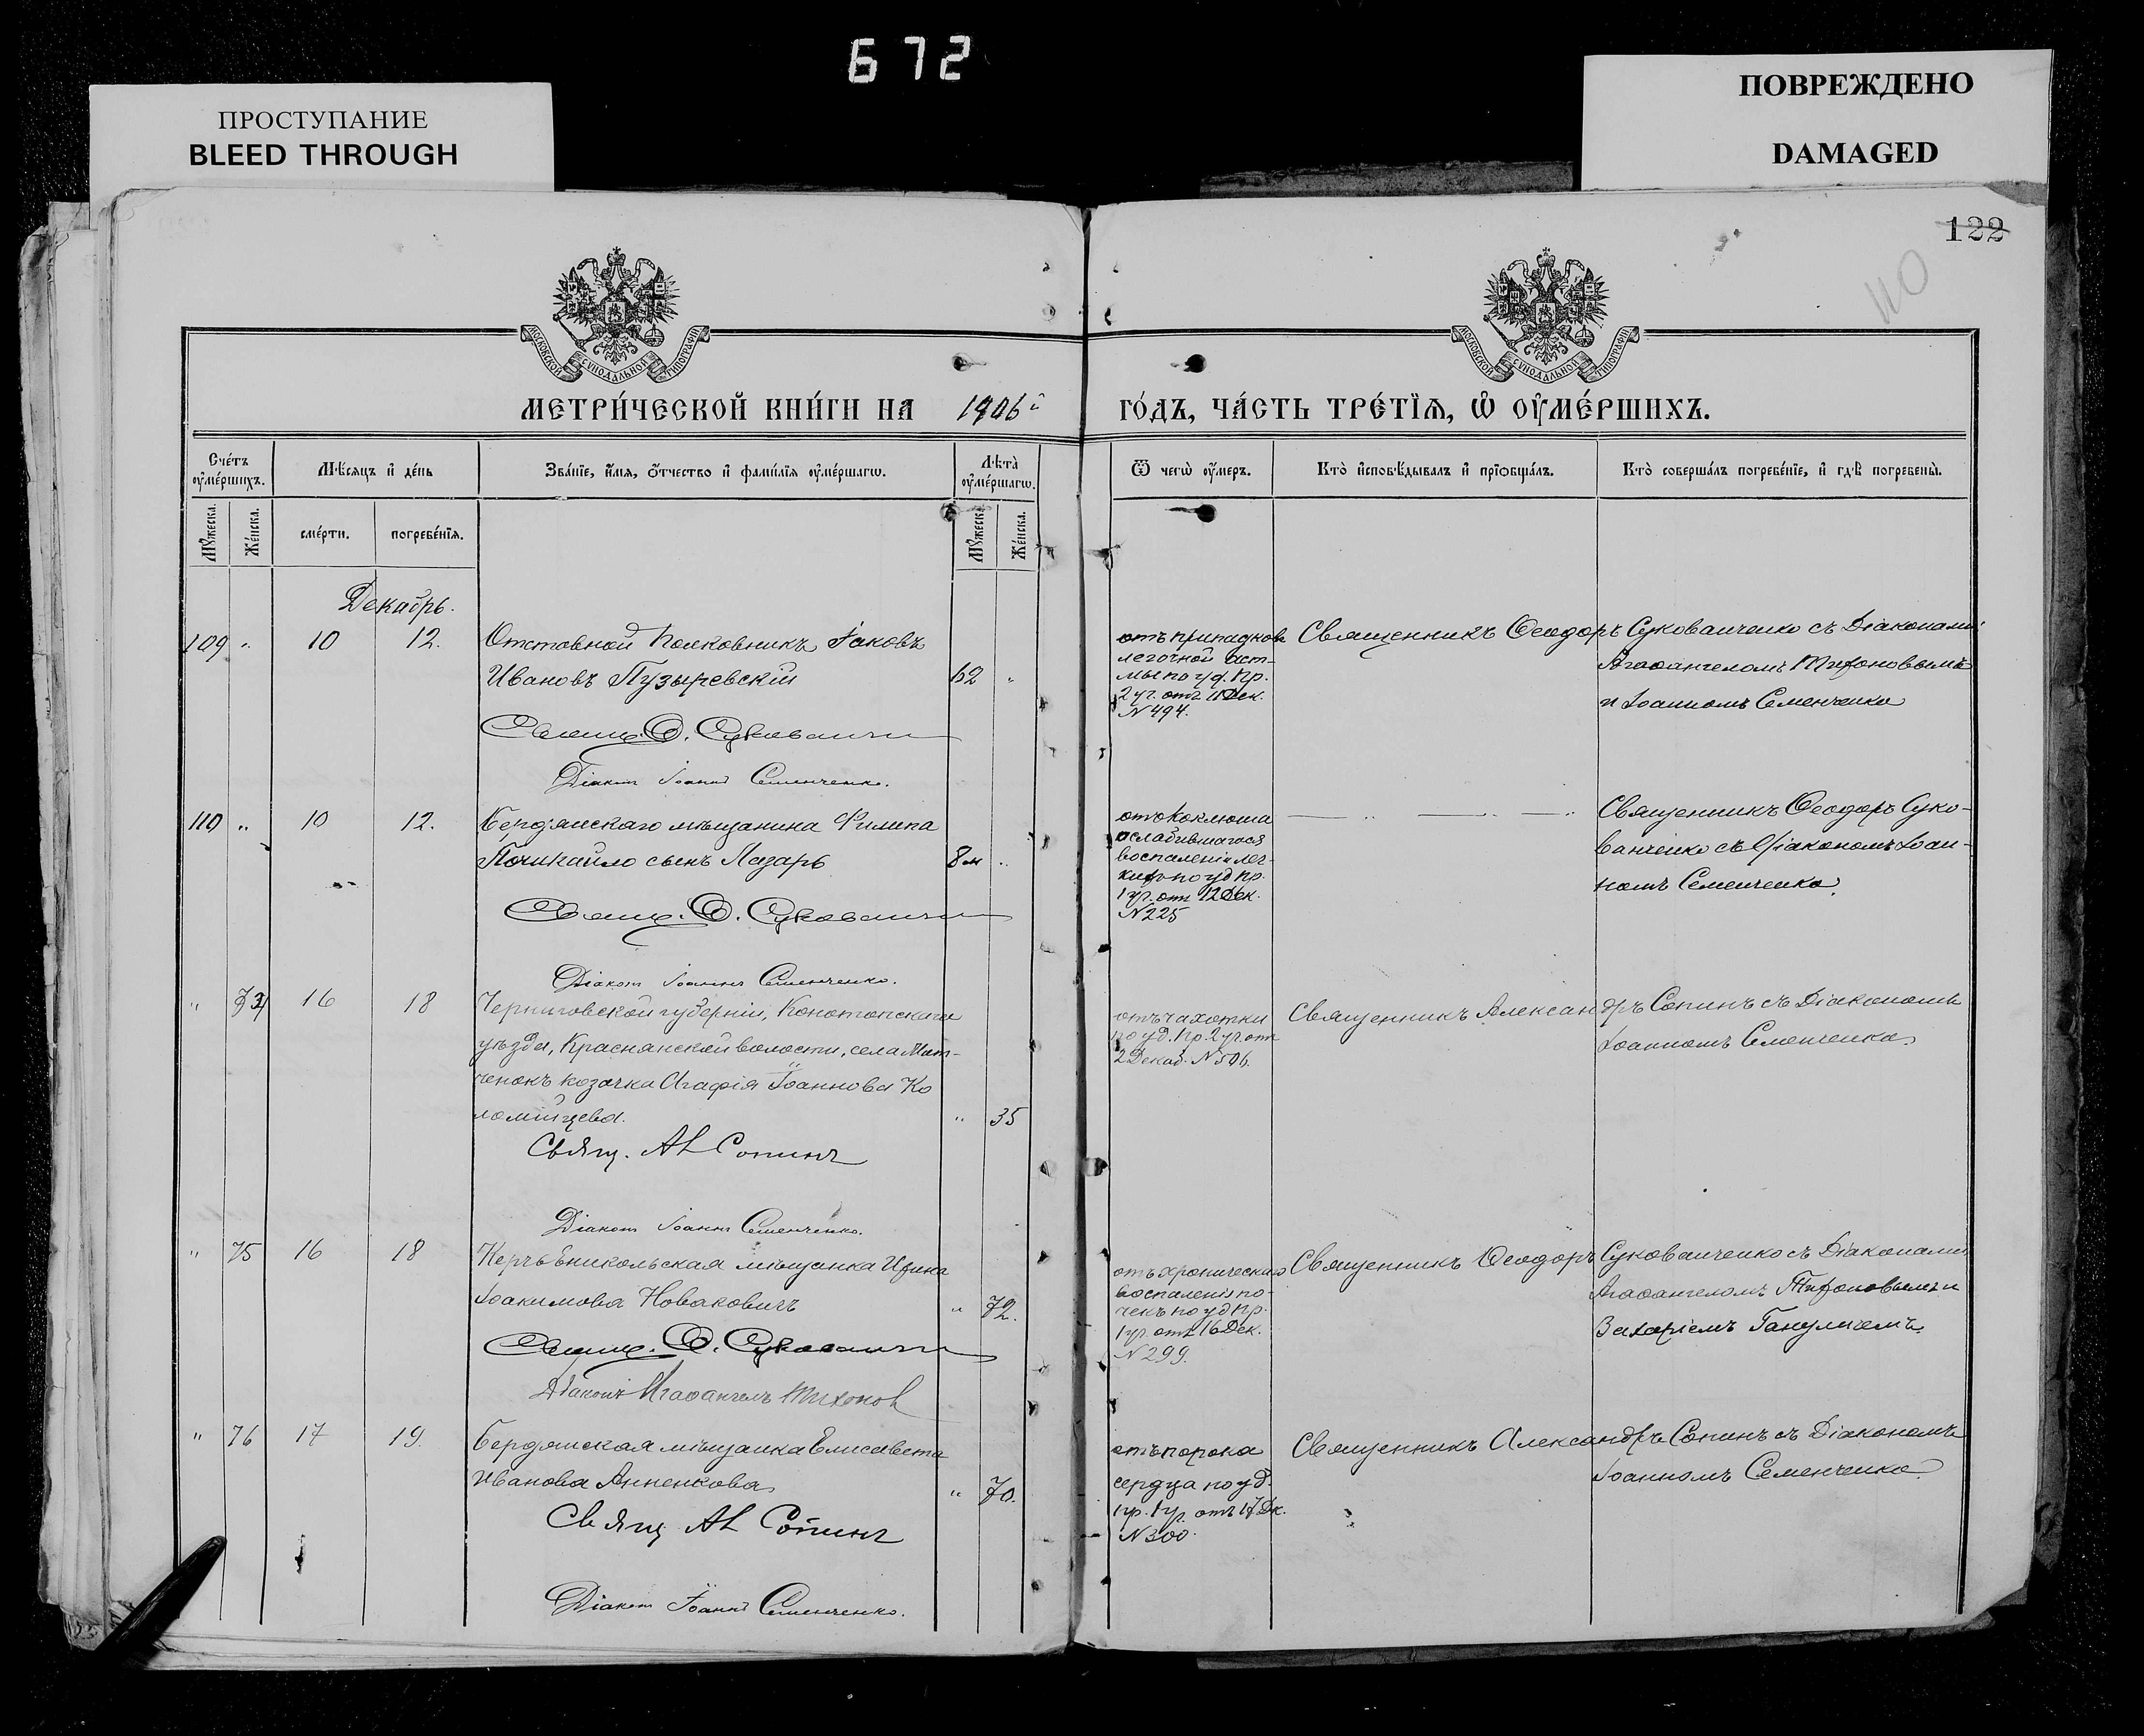 672
ПРОСТУПАНИЕ
BLEED THROUGH
ПОВРЕЖДЕНО
DAMAGED
122
110
МОСКОВСКОЙ СУНОДАЛЬНОЙ ТИПОГРАФІИ
МОСКОВСКОЙ СУНОДАЛЬНОЙ ТИПОГРАФІИ
МЕТРИ́ЧЕСКОЙ КНИ́ГИ НА 1906й
ГО́ДЪ, ЧА́СТЬ ТРЕ́ТІѦ, Ѡ҆ ОУ҆МЕ́РШИХЪ.
Сче́тъ оу҆ме́ршихъ.
Мѣ́сяцъ и҆ де́нь
Зва́нїе, и҆́мѧ, ѻ҆́тчество и҆ фами́лїѧ оу҆ме́ршагѡ.
Лѣта̀ оу҆ме́ршагѡ.
Ѿ чегѡ̀ оу҆́меръ.
Кто̀ и҆сповѣ́дывалъ и҆ прїѡбща́лъ.
Кто̀ соверша́лъ погребе́нїе, и҆ гдѣ̀ погребены̀.
Мꙋ́жеска.
Же́нска.
сме́рти.
погребе́нїѧ.
Мꙋ́жеска.
Же́нска.
Декабрь.
109 " 10 12. Отставной Полковникъ Іаковъ
Ивановъ Пузыревскій 62 "
Свящ. Ѳ. Сукованч
Діаконъ Іоаннъ Семенченко.
отъ припадковъ
легочной аст-
мы по уд. Пр.
2 уч. отъ 11 Дек.
N 494.
Священникъ Ѳеодоръ Сукованченко съ Діаконами
Агаѳангеломъ Тихоновымъ
и Іоанномъ Семенченко
110 " 10 12. Бердянскаго мѣщанина Филипа
Почикайло сынъ Лазарь 8 м "
Свящ. Ѳ. Сукованч
Діаконъ Іоаннъ Семенченко.
отъ коклюша
воспаленія лег-
кихъ по уд Пр.
1 уч. отъ 12 Дек.
N 225
Священникъ Ѳеодоръ Суко-
ванченко съ Діакономъ Іоан-
номъ Семенченко.
" 16 18 Черниговской губерніи, Конотопскаго
уѣзда, Краснянской волости, села Мат-
ченокъ козачка Агафія Іоаннова Ко
ломійцева. " 35
Свящ. Ал Сопинъ
Діаконъ Іоаннъ Семенченко.
отъ чахотки
по уд. Пр. 2 уч. отъ
2 Декаб. N 506.
Священникъ Александръ Сопинъ съ Діакономъ
Іоанномъ Семенченко.
" 75 16 18 Керчь Еникольская мѣщанка Ирина
Іоакимова Новаковичъ " 72.
Свящ. Ѳ. Сукованч
Діаконъ Агаѳангелъ Тихонов
отъ хроническаго
воспаленія по-
чекъ по уд Пр.
1 уч. отъ 16 Дек.
N 299.
Священникъ Ѳеодоръ Сукованченко съ Діаконами
Агаѳангеломъ Тихоновымъ и
Захаріемъ Гануличемъ
" 76 17 19. Бердянская мѣщанка Елисавета
Иванова Анненкова " 70.
Свящ Ал Сопинъ
Діаконъ Іоаннъ Семенченко.
отъ порока
сердца по уд.
Пр. 1 уч. отъ 17 Дк.
N 300.
Священникъ Александръ Сопинъ съ Діакономъ
Іоанномъ Семенченко.